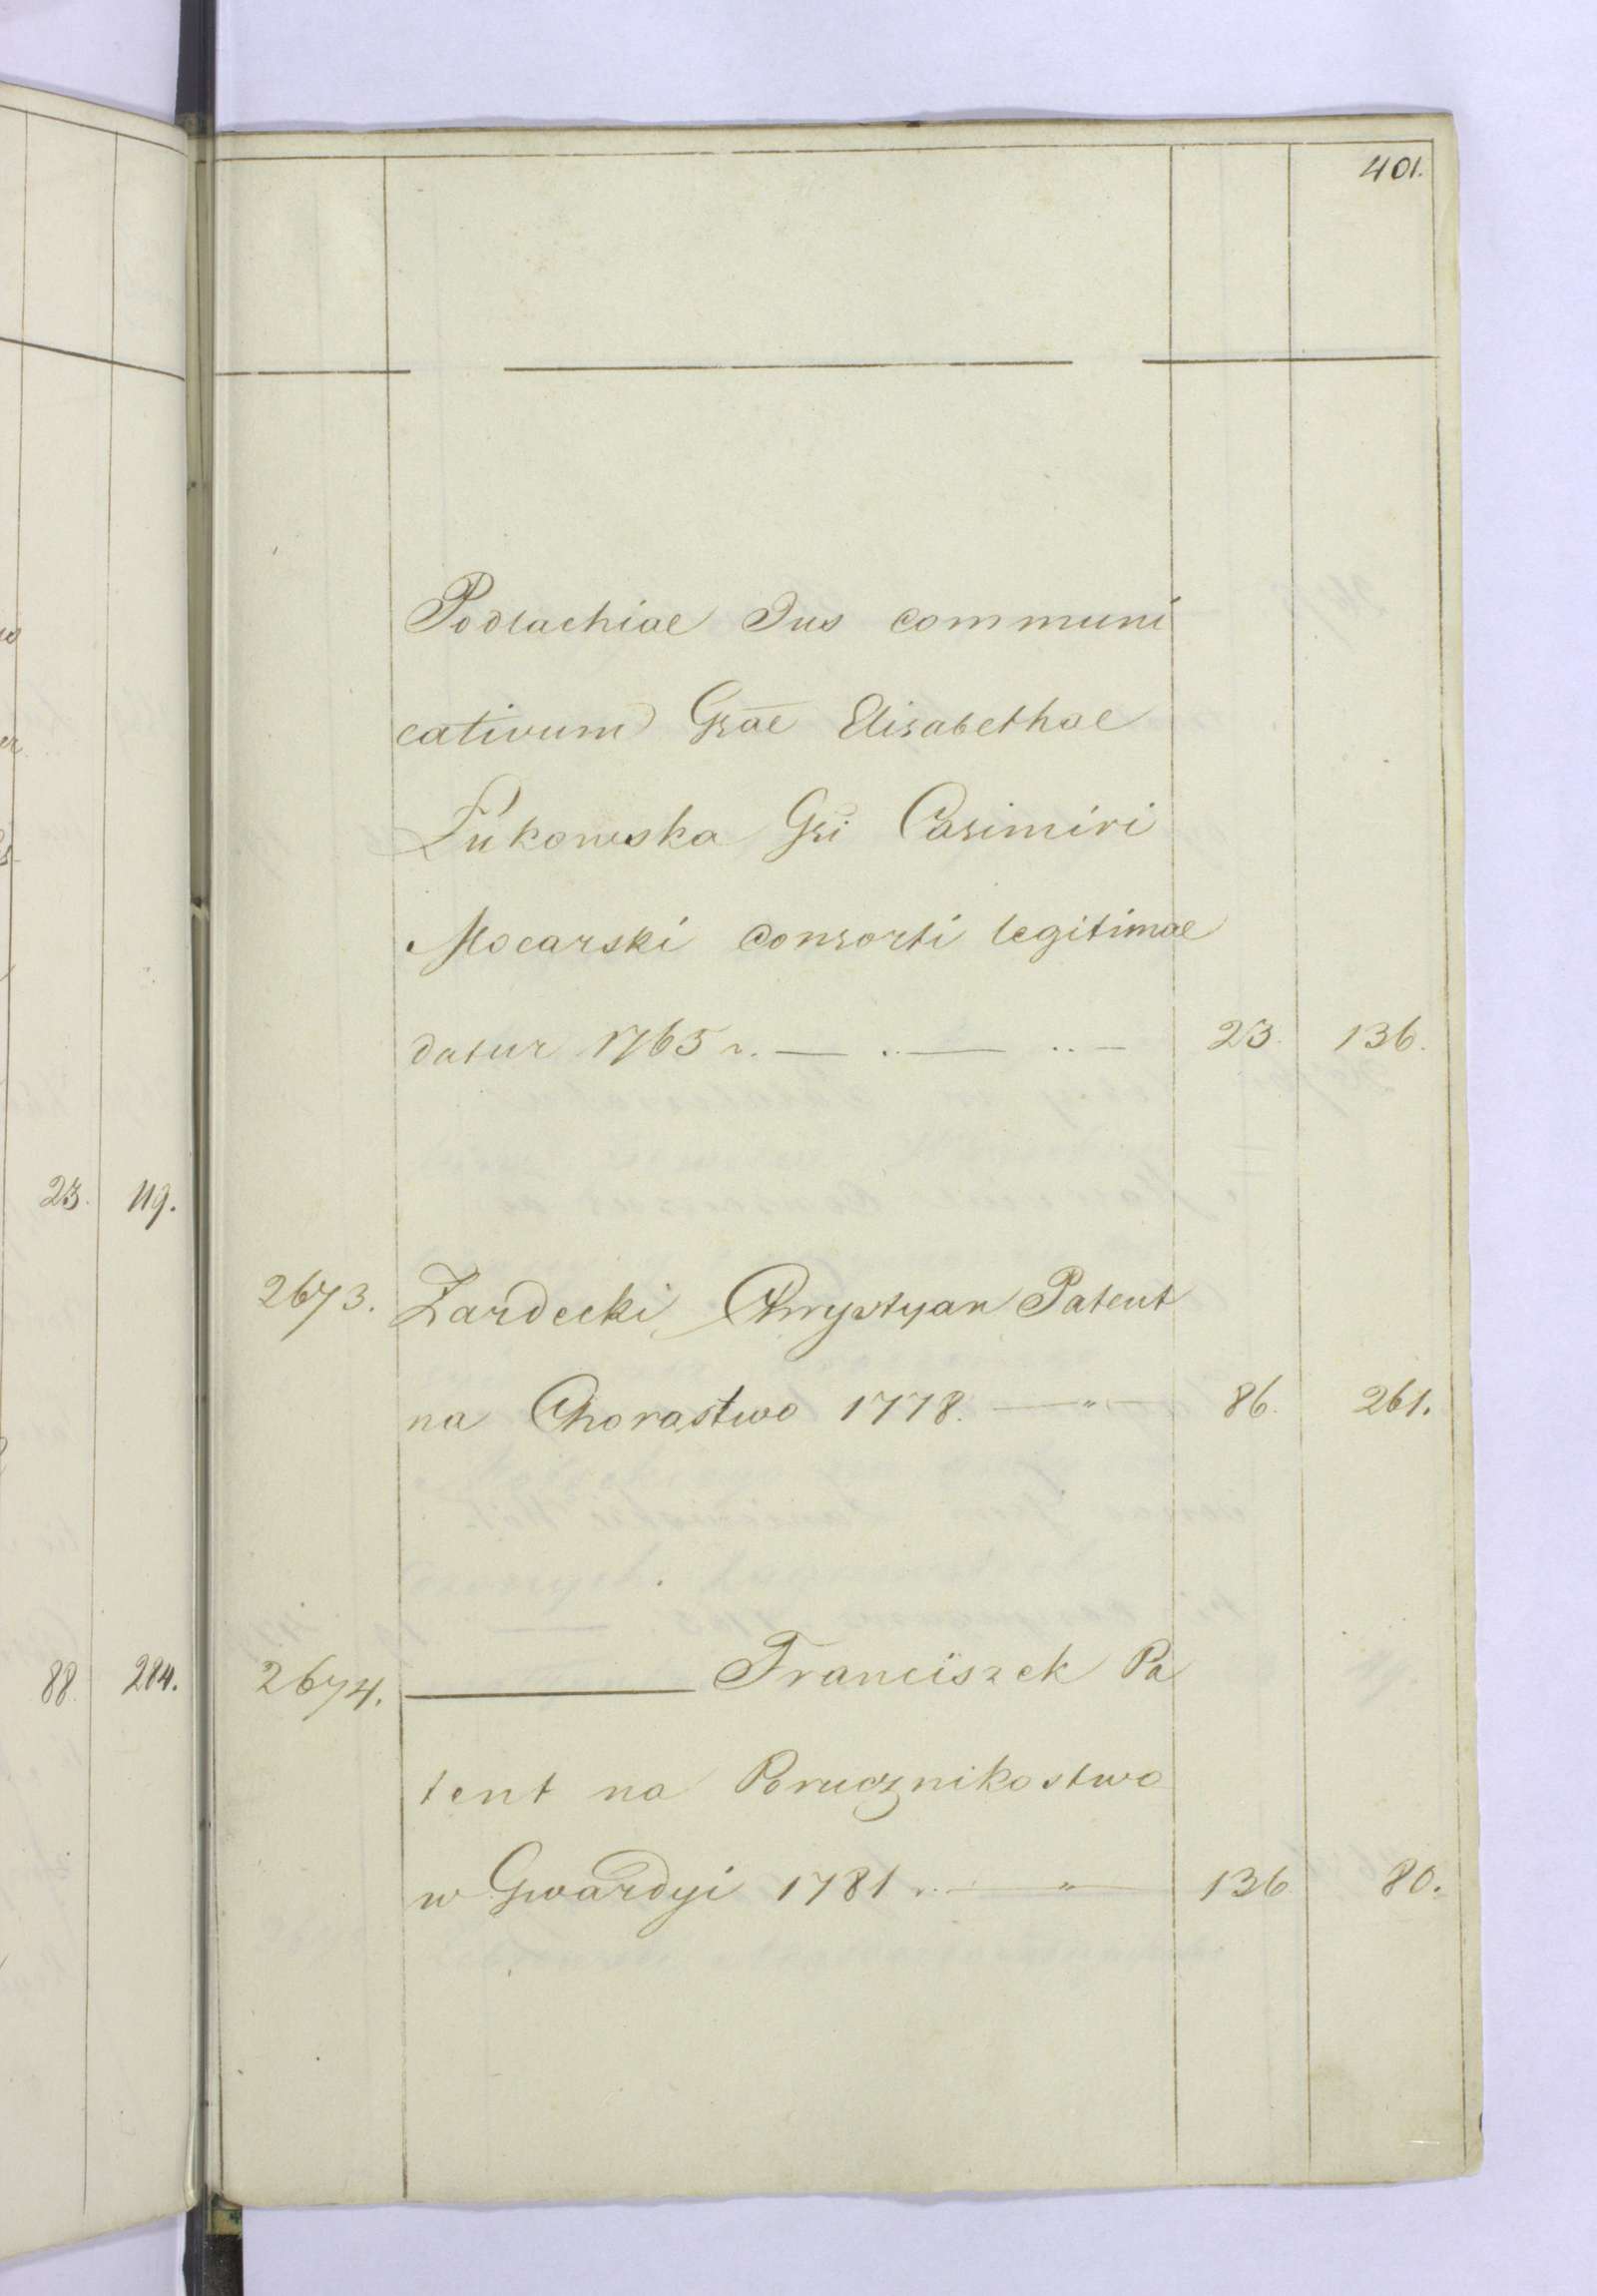 401.
Podlachiae Jus communi
cativum Gsae Elisabethae
Łukowska Gsi Casimiri
Mocarski consorti legitimae
datur 1765 r. — .. — .. — 23. 136.
23. 119.
2673. Zardecki Chrystyan Patent
na Chorastwo 1778. — " — 86. 261.
88. 284.
2674. ——— Franciszek Pa
tent na Porucznikostwo
w Gwardyi 1781 r. — " — 136 80.